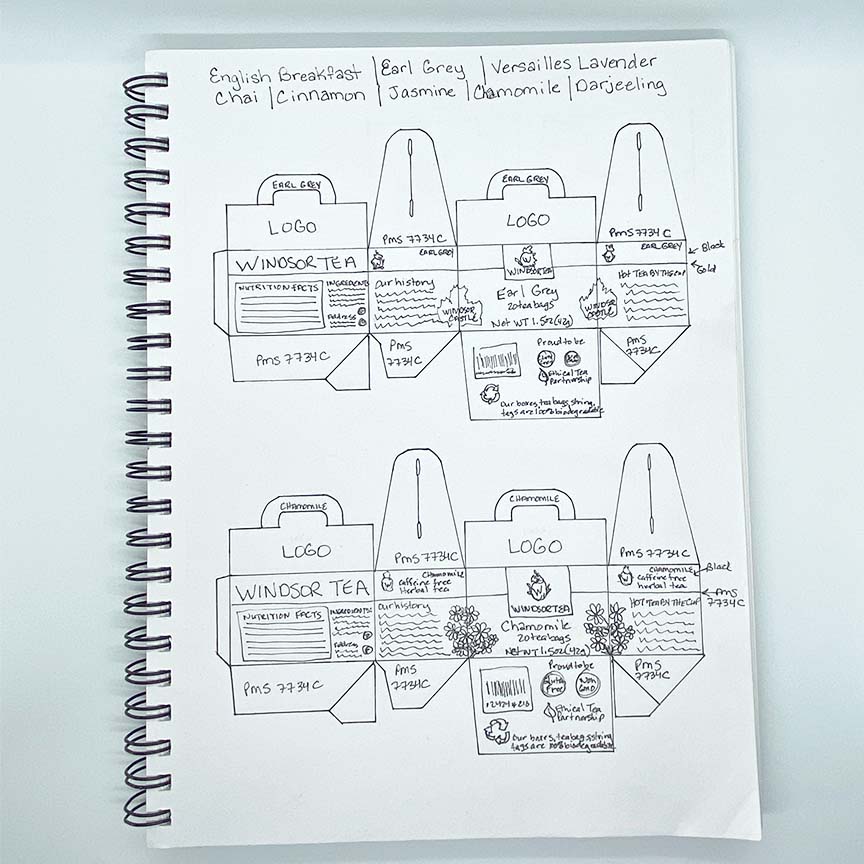 English Breakfast | Earl Grey | Versailles Lavender
Chai | Cinnamon | Jasmine | Chamomile | Darjeeling
EARL GREY
EARL GREY
LOGO
LOGO
PMS 7734 C
PMS 7734 C
EARL GREY
EARL GREY
Black
Gold
WINDSOR TEA
WINDSOR TEA
NUTRITION FACTS
INGREDIENTS
Address
our history
WINDSOR CASTLE
Earl Grey
20 teabags
Net WT 1.5oz (42g)
WINDSOR CASTLE
HOT TEA BY THE CUP
PMS 7734 C
PMS
7734 C
PMS
7734 C
Proud to be
Ethical Tea
Partnership
Our boxes, teabags, string,
tags are 100% biodegradable
CHAMOMILE
CHAMOMILE
LOGO
LOGO
PMS 7734 C
PMS 7734 C
CHAMOMILE
caffeine free
Herbal tea
CHAMOMILE
caffeine free
herbal tea
Black
PMS
7734 C
WINDSOR TEA
W
WINDSOR TEA
W
NUTRITION FACTS
INGREDIENTS:
Address
our history
Chamomile
20 teabags
Net WT 1.5oz (42g)
HOT TEA BY THE CUP
PMS 7734 C
PMS
7734 C
PMS
7734 C
Proud to be
Gluten
Free
Non
GMO
Ethical Tea
Partnership
Our boxes, teabags, string
tags are 100% biodegradable